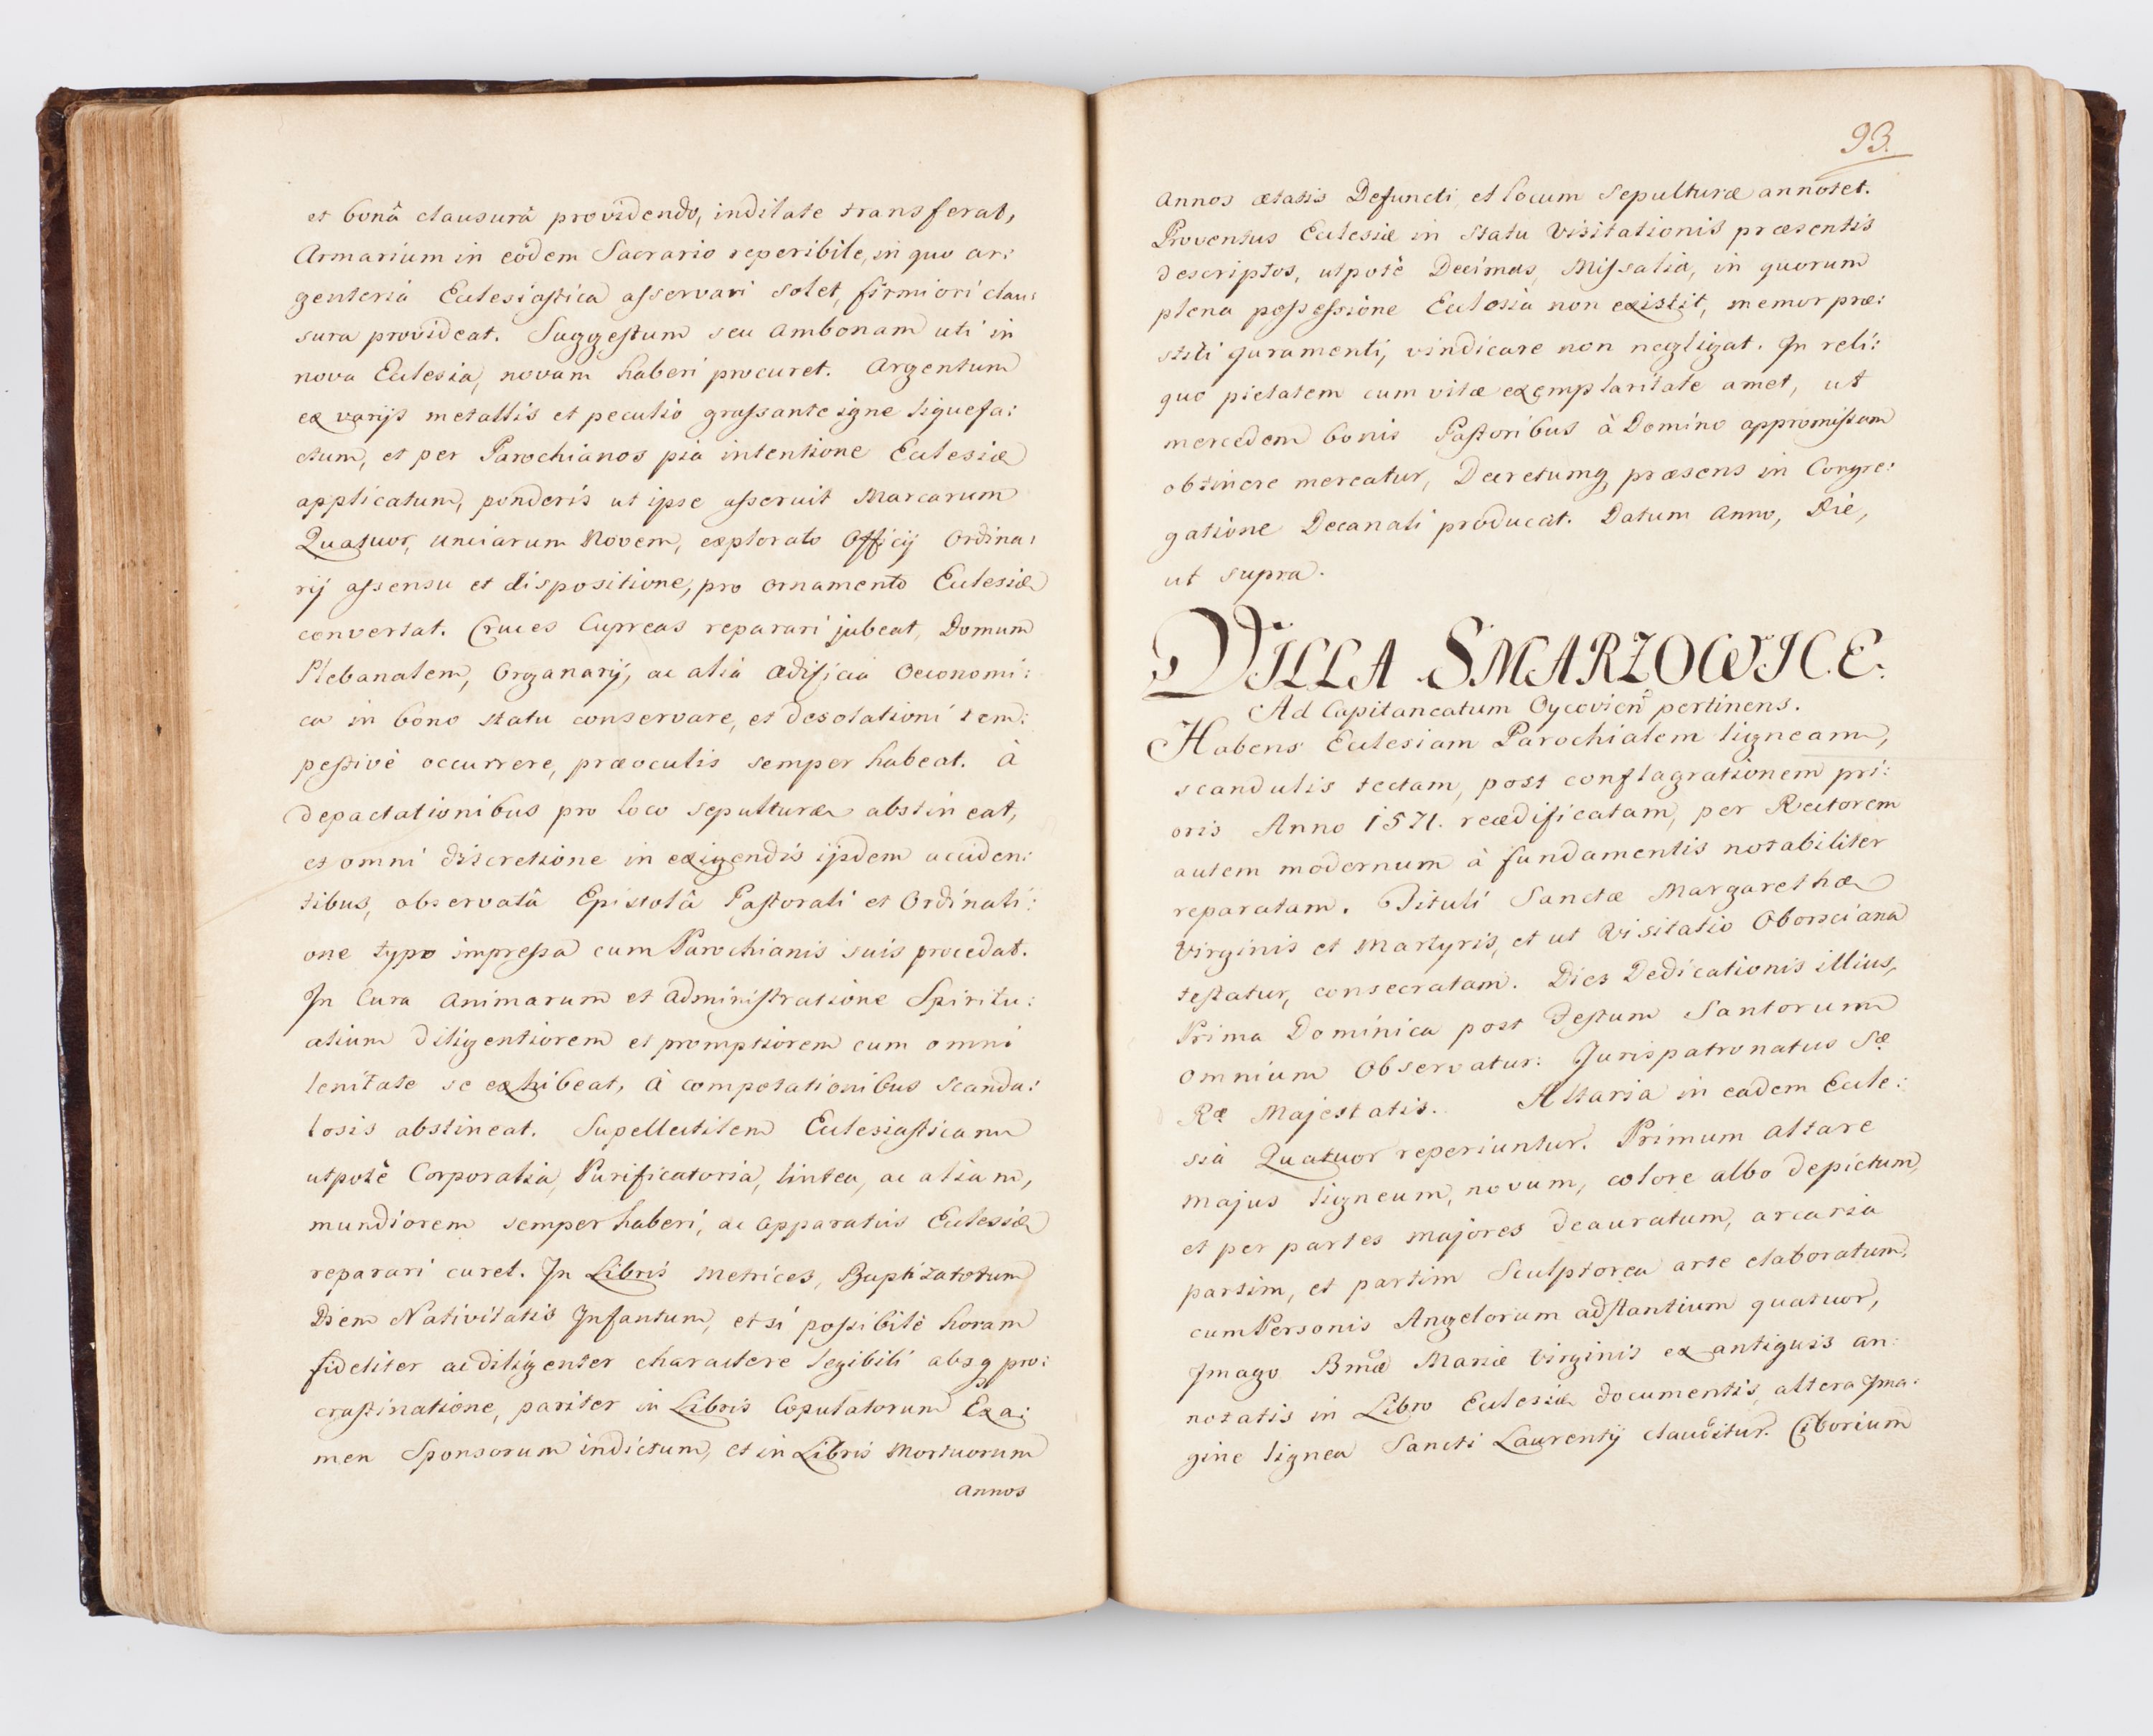 et bonâ clausurâ providendo, inditate transferat,
Armarium in eôdem Sacrario reperibile, in quo ar:
genteria Ecclesiastica asservari solet, firmiori clau:
sura provideat. Suggestum seu Ambonam uti in
nova Ecclesia, novam haberi procuret. Argentum
ex varijs metallis et peculio grassante igne liquefa:
ctum, et per Parochianos pia intentione Ecclesiæ
applicatum, ponderis ut ipse asseruit Marcarum
Quatuor, Unciarum Novem, explorato Officij Ordina:
rij assensu et dispositione, pro Ornamento Ecclesiæ
convertat. Cruces Cupreas reparari jubeat, Domum
Plebanalem, Organarij, ac alia Ædificia Oeconomi:
ca in bono statu conservare, et desolationi tem:
pestivè occurrere, præoculis semper habeat. à
depactationibus pro loco sepulturæ abstineat,
et omni discretione in exigendis ijsdem acciden:
tibus, observatâ Epistolâ Pastorali et Ordinati:
one typo impressa cum Parochianis suis procedat.
In Cura Animarum et Administratione Spiritu:
alium diligentiorem et promptiorem cum omni
lenitate se exhibeat, à compotationibus scanda:
losis abstineat. Supellectilem Ecclesiasticam
utpotè Corporalia, Purificatoria, lintea, ac aliam,
mundiorem semper haberi, ac Apparatus Ecclesiæ
reparari curet. In Libris Metrices, Baptizatorum
Diem Nativitatis Infantum, et si possibilè horam
fideliter ac diligenter charactere legibili absq pro:
crastinatione, pariter in Libris Copulatorum Exa:
men Sponsorum indictum, et in Libris Mortuorum
Annos
93.
Annos ætatis Defuncti, et locum Sepulturæ annotet.
Proventus Ecclesiæ in Statu Visitationis præsentis
descriptos, utpotè Decimas, Missalia, in quorum
plena possessione Ecclesia non existit, memor præ:
stiti juramenti, vindicare non negligat. In reli:
quo pietatem cum vitæ exemplaritate amet, ut
mercedem bonis Pastoribus à Domino appromissam
obtinere mereatur, Decretumq præsens in Congre:
gatione Decanali producat. Datum Anno, Die,
ut supra.
VILLA SMARZOWICE.
Ad Capitaneatum Oycovien pertinens.
Habens Ecclesiam Parochialem ligneam,
scandulis tectam, post conflagrationem pri:
oris Anno 1571. reædificatam, per Rectorem
autem modernum à fundamentis notabiliter
reparatam. Tituli Sanctæ Margarethæ
Virginis et Martyris, et ut Visitatio Oborsciana
testatur, consecratam. Dies Dedicationis illius,
Prima Dominica post Festum Santorum
Omnium Observatur: Jurispatronatus Sæ
Ræ Majestatis. Altaria in eadem Eccle:
sia Quatuor reperiuntur. Primum Altare
majus ligneum, novum, colore albo depictum,
et per partes majores deauratum, arcaria
partim, et partim Sculptorea arte elaboratum,
cum Personis Angelorum adstantium quatuor,
Imago Bmæ Mariæ Virginis ex antiquis an:
notatis in Libro Ecclesiæ documentis, altera Ima:
gine lignea Sancti Laurentij clauditur. Ciborium